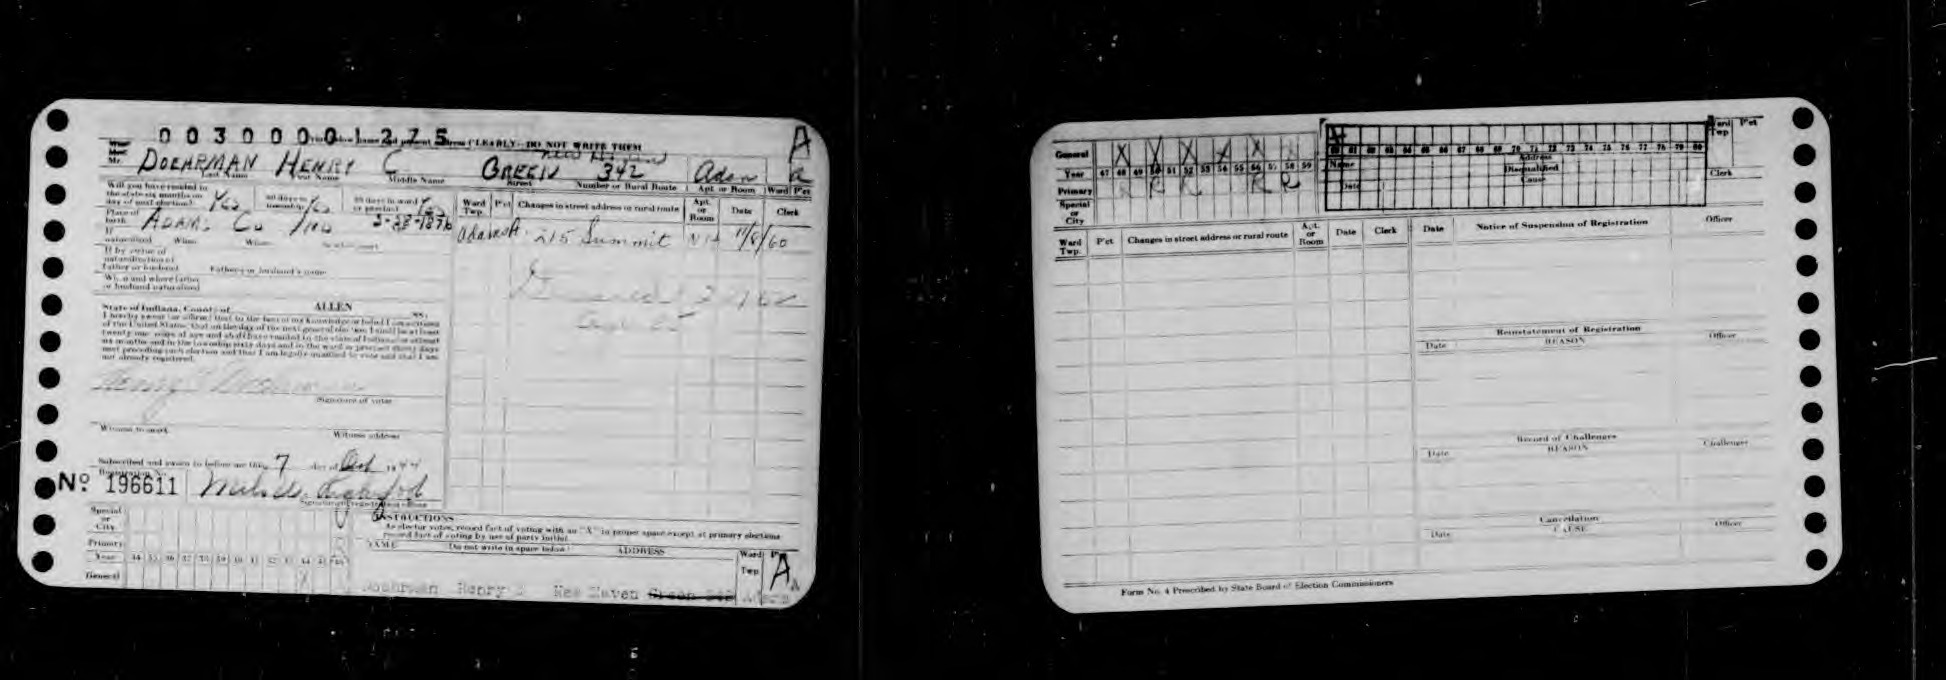 0030000 1275
CLEARLY—DO NOT WRITE THEM
Mr. DOEHRMAN HENRY C GREEN 342 New Haven Adam A a
Last Name First Name Middle Name Street Number or Rural Route Apt. or Room Ward P'ct
Will you have resided in the state six months on day of next election? Yes 60 days in township Yes 30 days in ward or precinct Yes
Place of birth ADAMS Co IND 3-28-1876
If naturalized When Where
If by virtue of naturalization of Father or husband Father's or husband's name
When and where father or husband naturalized
Ward Twp. P'ct Changes in street address or rural route Apt. or Room Date Clerk
Adams A 215 Summit N H 11/8/60
State of Indiana, County of ALLEN SS:
I hereby swear (or affirm) that to the best of my knowledge or belief I am a citizen
of the United States; that on the day of the next general election, I shall be at least
twenty-one years of age and shall have resided in the state of Indiana for at least
six months and in the township sixty days and in the ward or precinct thirty days
next preceding such election and that I am legally qualified to vote and that I am
not already registered.
Henry C Doehrman
Signature of voter
Witness to mark Witness address
Subscribed and sworn to before me this 7 day of Oct 1944
Registration No.
No. 196611
Signature of registration officer
INSTRUCTIONS
As elector votes, record fact of voting with an "X" in proper space except at primary elections
record fact of voting by use of party initial.
NAME Do not write in space below! ADDRESS Ward Twp P'ct
Special or City
Primary
Year 34 35 36 37 38 39 40 41 42 43 44 45 46
General
Doehrman Henry C New Haven Green 342 Adams A
General X X X X X
Year 47 48 49 50 51 52 53 54 55 56 57 58 59
Primary R R R R R
Special or City
60 61 62 63 64 65 66 67 68 69 70 71 72 73 74 75 76 77 78 79 80
Name Address
Disqualified
Date Cause
Ward Twp P'ct
Clerk
Ward Twp. P'ct Changes in street address or rural route Apt. or Room Date Clerk
Date Notice of Suspension of Registration Officer
Reinstatement of Registration
Date REASON Officer
Record of Challenges
Date REASON Challenger
Cancellation
Date CAUSE Officer
Form No. 4 Prescribed by State Board of Election Commissioners